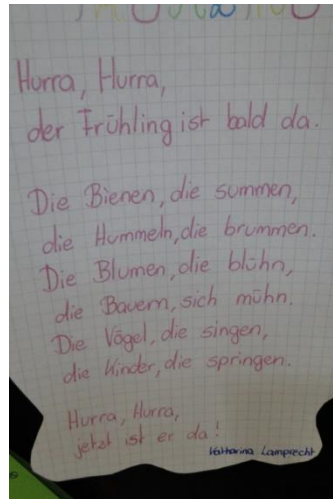 Hurra, Hurra,
der Frühling ist bald da.
Die Bienen, die summen,
die Hummeln, die brummen.
Die Blumen, die blühn,
die Bauern, sich mühn.
Die Vögel, die singen,
die Kinder, die springen.
Hurra, Hurra,
jetzt ist er da!
Katharina Lamprecht